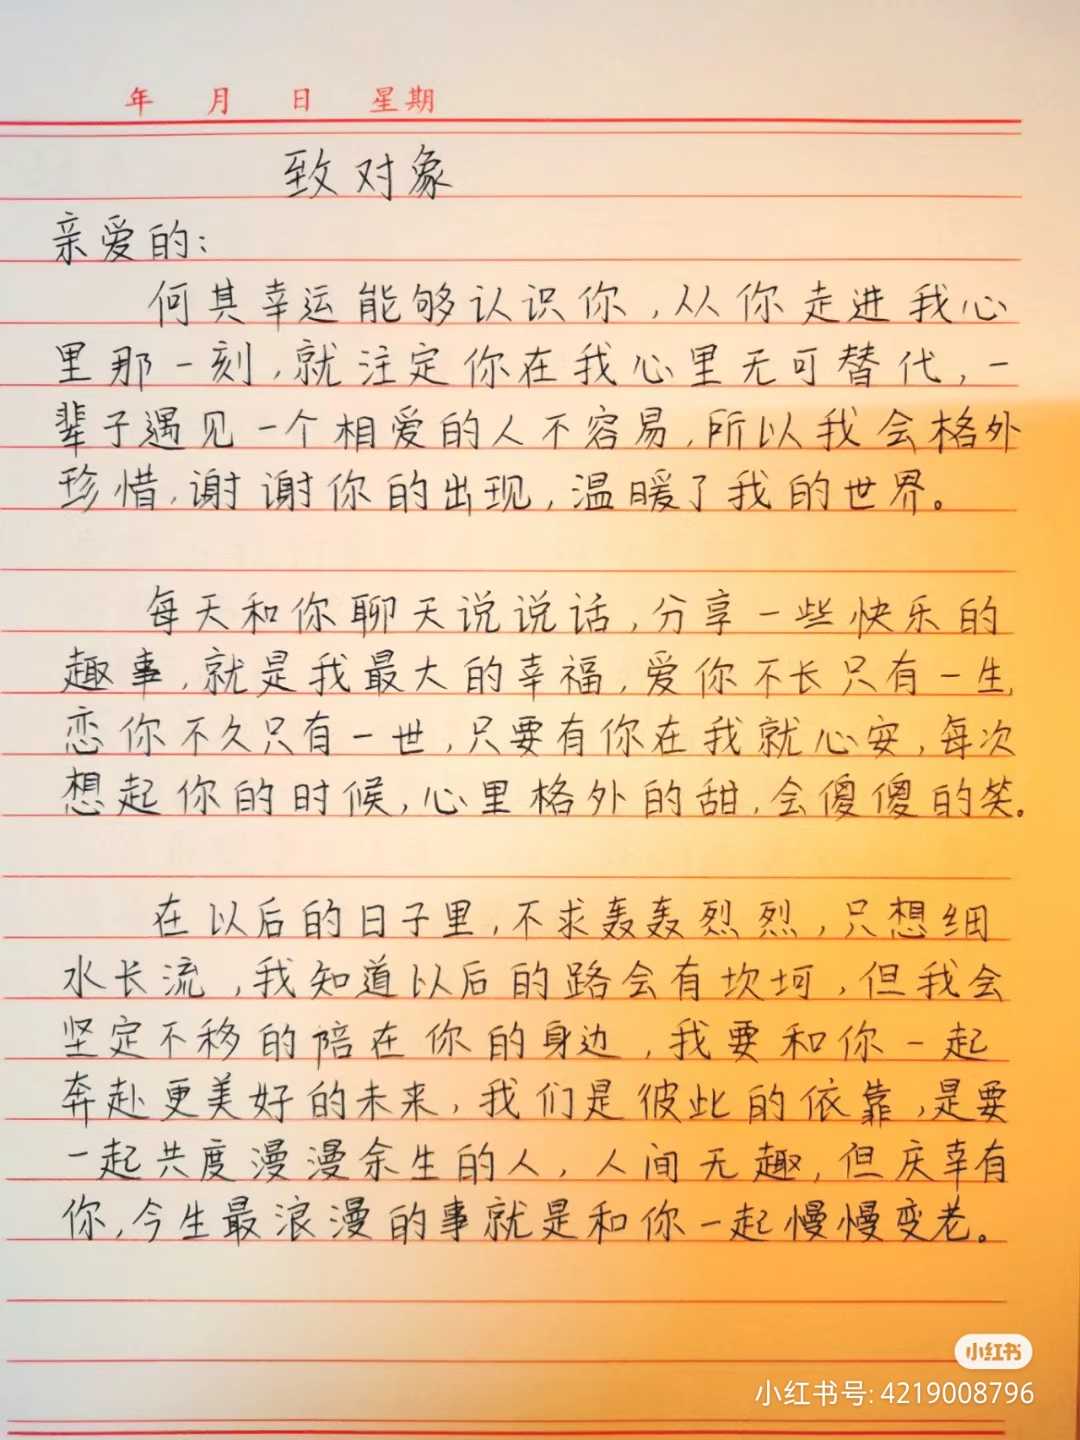 年 月 日 星期
致对象
亲爱的:
何其幸运能够认识你,从你走进我心
里那一刻,就注定你在我心里无可替代,一
辈子遇见一个相爱的人不容易,所以我会格外
珍惜,谢谢你的出现,温暖了我的世界。
每天和你聊天说说话,分享一些快乐的
趣事,就是我最大的幸福,爱你不长只有一生,
恋你不久只有一世,只要有你在我就心安,每次
想起你的时候,心里格外的甜,会傻傻的笑。
在以后的日子里,不求轰轰烈烈,只想细
水长流,我知道以后的路会有坎坷,但我会
坚定不移的陪在你的身边,我要和你一起
奔赴更美好的未来,我们是彼此的依靠,是要
一起共度漫漫余生的人,人间无趣,但庆幸有
你,今生最浪漫的事就是和你一起慢慢变老。
小红书
小红书号: 4219008796